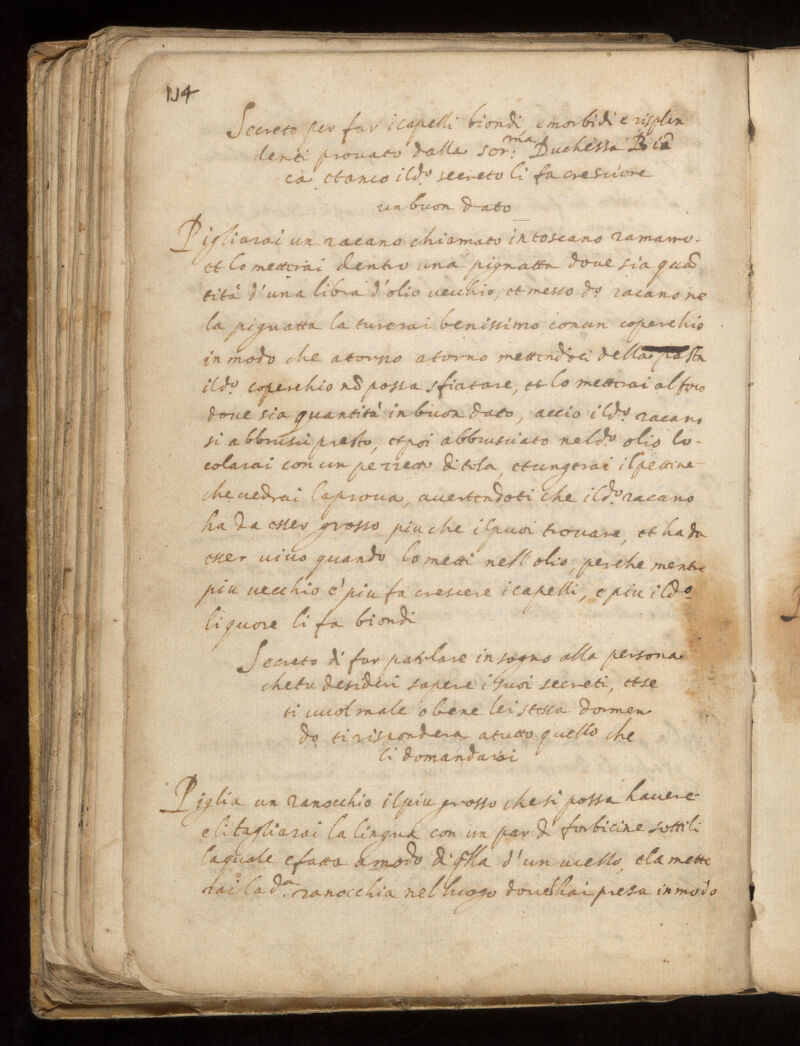 114
Secreto per far i capelli biondi, e morbidi e risplen
denti provato dalla ser.ma Duchessa Biā
ca, et anco il d.o secreto li fa cresciere
un buon dato
Pigliarai un racano chiamato in toscano ramarro.
et lo metterai dentro una pignatta dove sia quā
tità d'una libra d'olio vecchio, et messo d.o racano ne
la pignatta la turerai benissimo con un coperchio
in modo che atorno atorno mettendoci della pasta
il d.o coperchio nō possa sfiatare, et lo metterai al foco
dove sia quantità in buon dato, accio il d.o racano
si abbrusci presto, et poi abbrusciato nel d.o olio lo
colarai con un pezzetto di tela, et ungerai il pettine
che vedrai la prova, avertendoti che il d.o racano
ha da esser grosso piu che il puoi trovare, et ha da
esser vivo quando lo metti nell'olio, perche mentre
piu vecchio e' piu fa crescere i capelli, e piu il d.o
liquore li fa biondi
Secreto di far parlare in sogno alla persona
che tu desideri sapere i suoi secreti, et se
ti vuol male o bene lei stessa dormen
do ti risponderà a tutto quello che
li domandarai
Piglia un ranocchio il piu grosso che si possa havere
e li tagliarai la lingua con un par di forbicine sottili
la quale e fatta a modo di q̃lla d'un ucello, e la mette
rai la d.a ranocchia nel luogo dove l'hai presa in modo